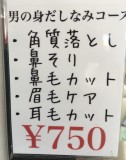 男の身だしなみコース
・角質落とし
・鼻そり
・鼻毛カット
・眉毛ケア
・耳毛カット
¥750